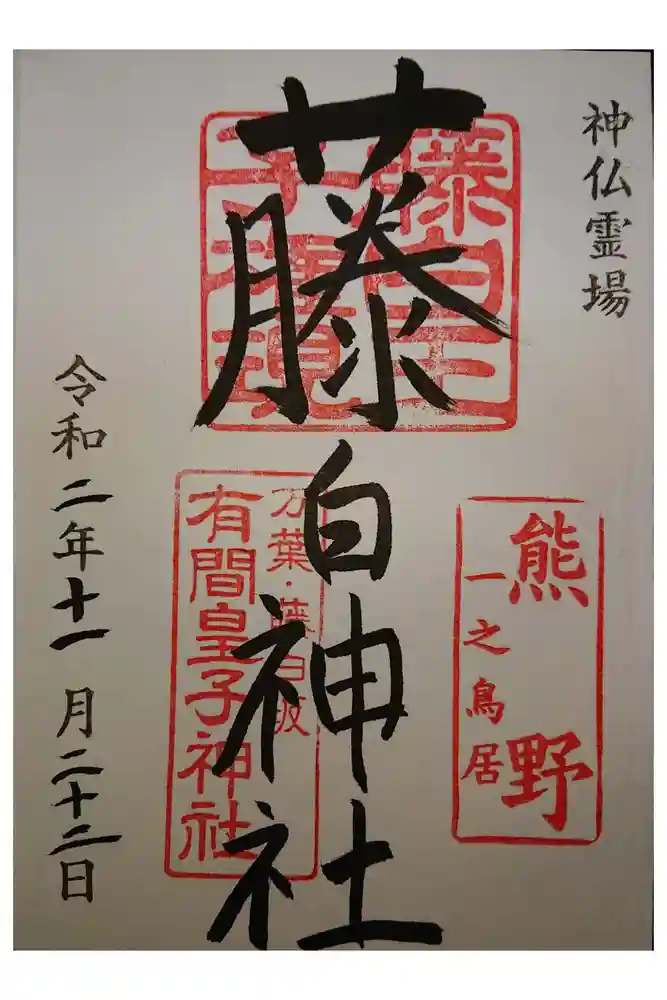 神仏霊場
藤白神社
藤白王
子権現
熊野
一之鳥居
万葉・藤白坂
有間皇子神社
令和二年十一月二十二日